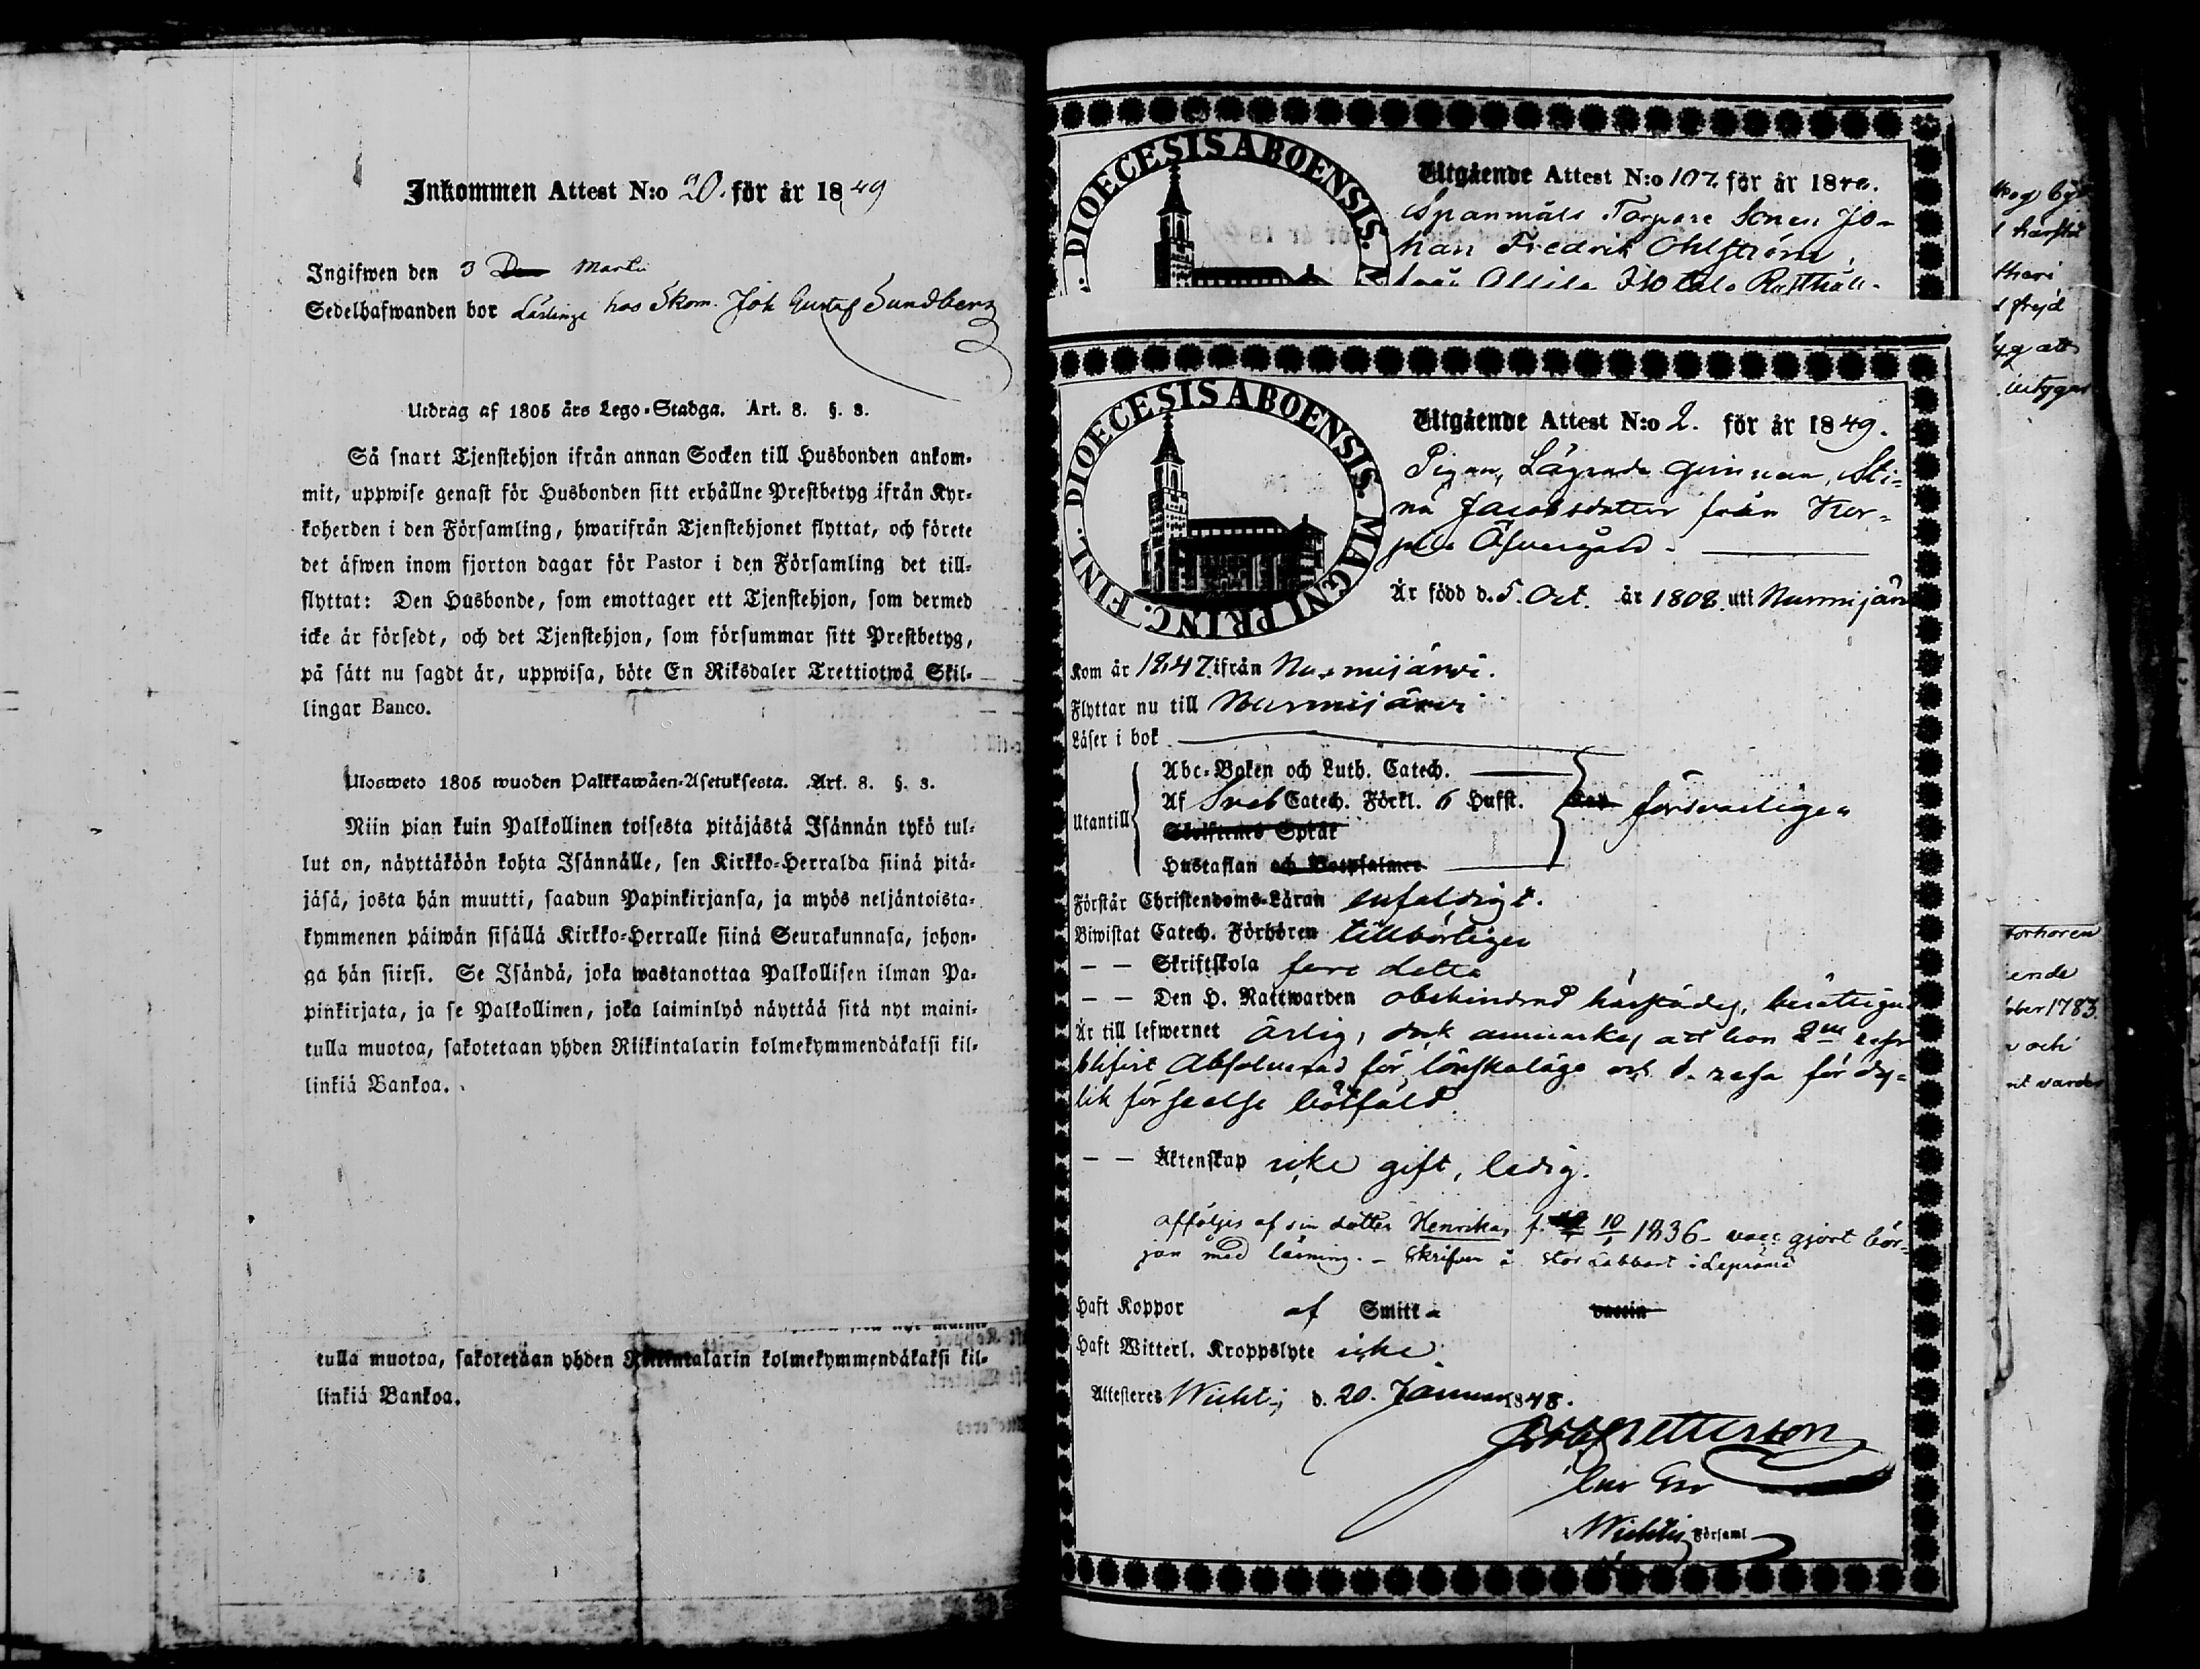 Inkommen Attest N:o 20. för år 1849
Ingifwen den 3 Martii
Sedelhafwanden bor hos Skom. Joh Gustaf Sundberg
Utdrag af 1805 års Lego-Stadga. Art. 8. §. 8.
Så snart Tjenstehjon ifrån annan Socken till Husbonden ankom-
mit, uppwise genast för Husbonden sitt erhållne Prestbetyg ifrån Kyr-
koherden i den Församling, hwarifrån Tjenstehjonet flyttat, och förete
det äfwen inom fjorton dagar för Pastor i den Församling det till-
flyttat: Den Husbonde, som emottager ett Tjenstehjon, som dermed
icke är försedt, och det Tjenstehjon, som försummar sitt Prestbetyg,
på sätt nu sagdt är, uppwisa, böte En Riksdaler Trettiotwå Skil-
lingar Banco.
Ulosweto 1805 wuoden Palkkawäen-Asetuksesta. Art. 8. §. 8.
Niin pian kuin Palkollinen toisesta pitäjästä Isännän tykö tul-
lut on, näyttäköön kohta Isännälle, sen Kirkko-Herralda siinä pitä-
jäsä, josta hän muutti, saadun Papinkirjansa, ja myös neljäntoista-
kymmenen päiwän sisällä Kirkko-Herralle siinä Seurakunnasa, johon-
ga hän siirsi. Se Isändä, joka wastanottaa Palkollisen ilman Pa-
pinkirjata, ja se Palkollinen, joka laiminlyö näyttää sitä nyt maini-
tulla muotoa, sakotetaan yhden Riikintalarin kolmekymmendäkaksi kil-
linkiä Bankoa.
tulla muotoa, sakotetaan yhden Riikintalarin kolmekymmendäkaksi kil-
linkiä Bankoa.
DIOECESIS ABOENSIS.
Utgående Attest N:o 107. för år 18
Spanmåls Torpare Sonen Jo-
han Fredrik Ohlström,
från Ollila Rusthåll-
DIOECESIS ABOENSIS. MAGNI PRINC. FINL.
Utgående Attest N:o 2. för år 1849.
Pigan, Lägrade qvinnan, Sti-
na Jacobsdotter från Ker-
pela Öfvergård.
Är född d. 5. Oct. år 1808. uti Nurmijärvi
Kom år 1847. ifrån Nurmijärvi.
Flyttar nu till Nurmijärvi
Läser i bok
Utantill
Abc-Boken och Luth. Catech.
Af Sveb Catech. Förkl. 6 Hufst. försvarligen
Skriftenes Språk
Hustaflan och Botpsalmer
Förstår Christendoms-Läran enfaldigt.
Biwistat Catech. Förhören tillbörligen
— — Skriftskola före detta
— — Den H. Nattwarden obehindrad härstädes, berättigad
Är till lefwernet ärlig, dock anmärkes att hon 2ne resor
blifvit Absolverad för lönskaläge och 1. resa för dy-
lik förseelse bötfäld.
— — Äktenskap icke gift, ledig.
Åtföljes af sin dotter Henrika, f. 1836 gjort bör-
jan med läsning. — Skrifven å Stor Labbart i Lepsämä
Haft Koppor af Smitta vaccin
Haft Witterl. Kroppslyte icke.
Attesteres Wichtis d. 20. Januari 1848.
i Wichtis Församl